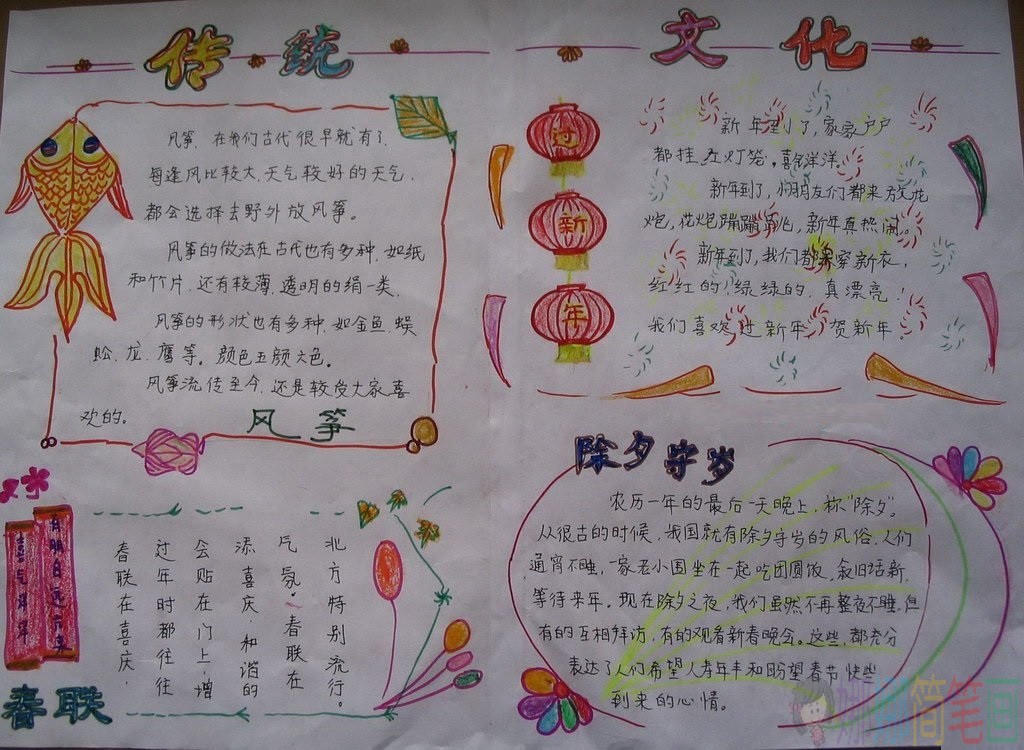 传统文化
风筝,在我们古代很早就有了.
每逢风比较大、天气较好的天气,
都会选择去野外放风筝。
风筝的做法在古代也有多种,如纸
和竹片,还有较薄、透明的绢一类.
风筝的形状也有多种,如金鱼、蜈
蚣、龙、鹰等。颜色五颜六色。
风筝流传至今,还是较受大家喜
欢的。
风筝
过新年
新年到了,家家户户
都挂红灯笼,喜气洋洋。
新年到了,小朋友们都来放花
炮,花炮蹦蹦跳,新年真热闹。
新年到了,我们都穿新衣,
红红的,绿绿的,真漂亮
我们喜欢过新年,贺新年。
春联在喜庆,
过年时都往往
会贴在门上,增
添喜庆、和谐的
气氛。春联在
北方特别流行。
喜气洋洋
春联
除夕守岁
农历一年的最后一天晚上,称“除夕”。
从很古的时候,我国就有除夕守岁的风俗.人们
通宵不睡,一家老小围坐在一起吃团圆饭,叙旧话新,
等待来年。现在除夕之夜,我们虽然不再整夜不睡,但
有的互相拜访,有的观看新春晚会。这些,都充分
表达了人们希望人寿年丰和盼望春节快些
到来的心情。
简笔画